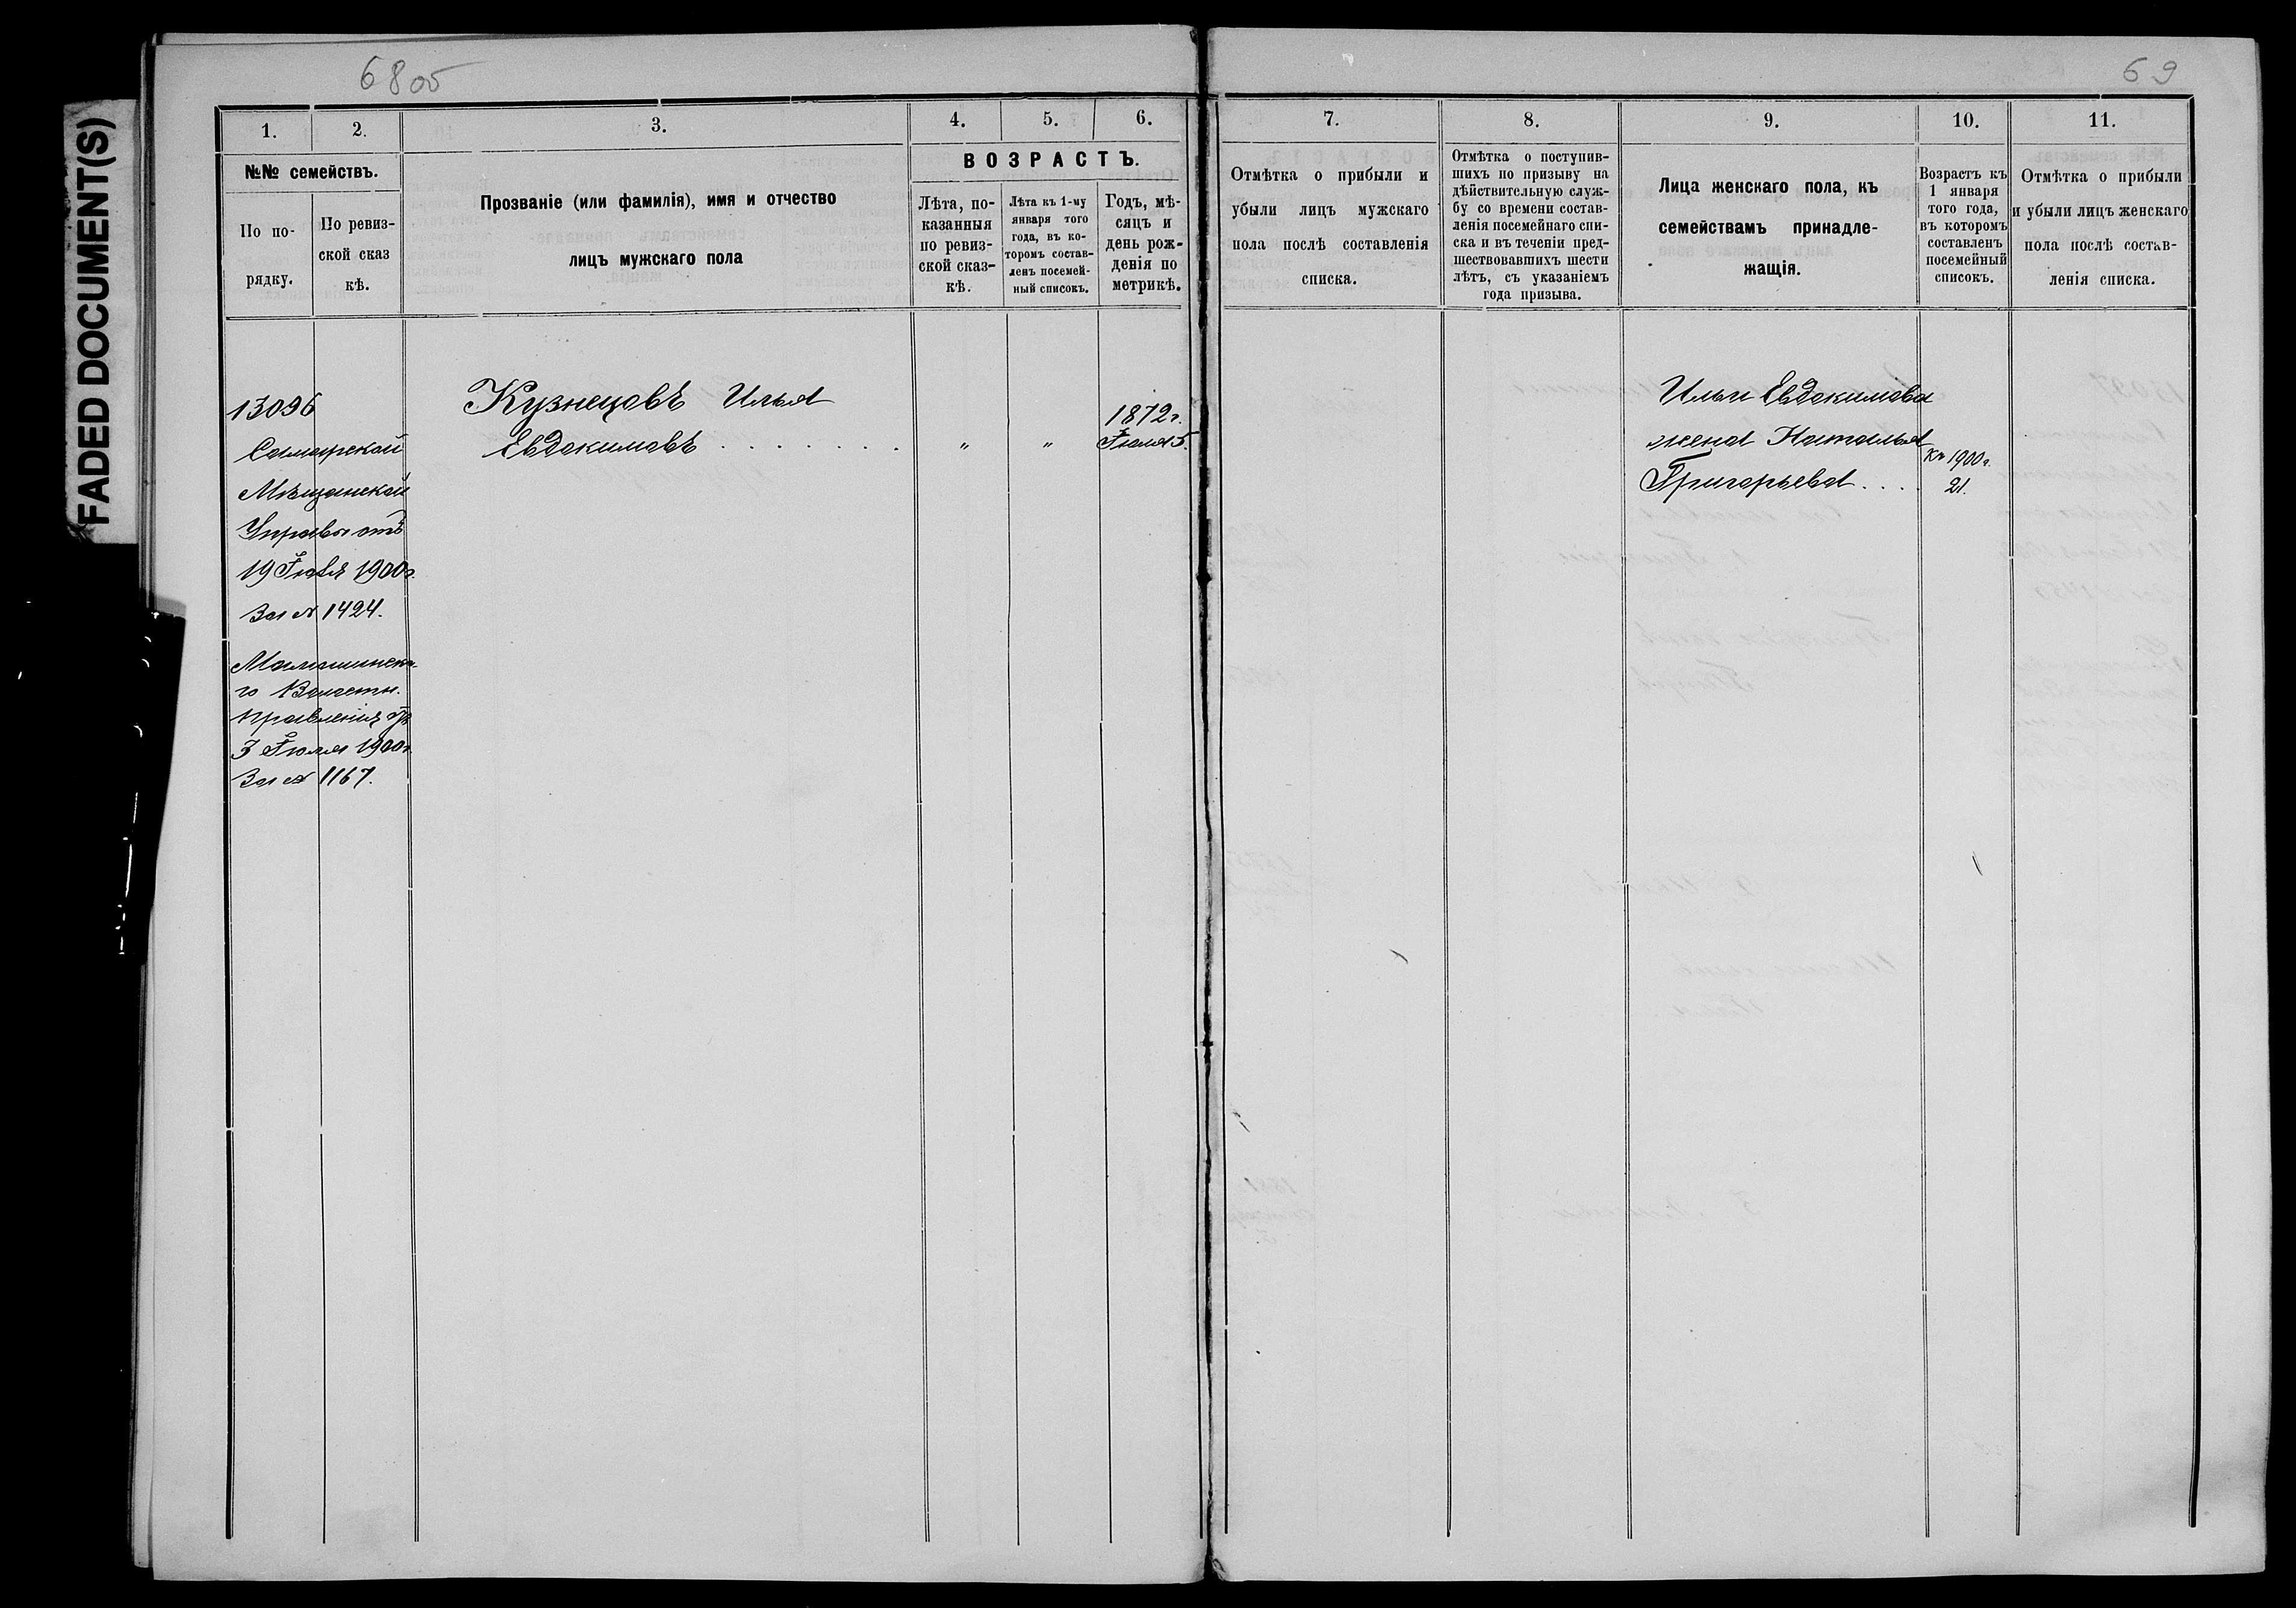 FADED DOCUMENT(S)
68об
69
1.
2.
3.
4.
5.
6.
№№ семействъ.
По по-
рядку.
По ревиз-
ской сказ
кѣ.
Прозваніе (или фамилія), имя и отчество
лицъ мужскаго пола
ВОЗРАСТЪ.
Лѣта, по-
казанныя
по ревиз-
ской сказ-
кѣ.
Лѣта къ 1-му
января того
года, въ ко-
торомъ состав-
ленъ посемей-
ный списокъ.
Годъ, мѣ-
сяцъ и
день рож-
денія по
метрикѣ.
7.
8.
9.
10.
11.
Отмѣтка о прибыли и
убыли лицъ мужскаго
пола послѣ составленія
списка.
Отмѣтка о поступив-
шихъ по призыву на
дѣйствительную служ-
бу со времени состав-
ленія посемейнаго спи-
ска и въ теченіи пред-
шествовавшихъ шести
лѣтъ, съ указаніемъ
года призыва.
Лица женскаго пола, къ
семействамъ принадле-
жащія.
Возрастъ къ
1 января
того года,
въ которомъ
составленъ
посемейный
списокъ.
Отмѣтка о прибыли
и убыли лицъ женскаго
пола послѣ состав-
ленія списка.
13096
Самарской
Мѣщанской
Управы отъ
19 Іюля 1900г.
За № 1424.
го Волостн.
Правленія
3 Іюля 1900г.
За № 1167.
Кузнецовъ Илья
Евдокимовъ . . . . . . .
"
"
1872г.
Іюля 5.
Ильи Евдокимова
жена Наталья
Григорьева . . . .
Къ 1900г.
21.